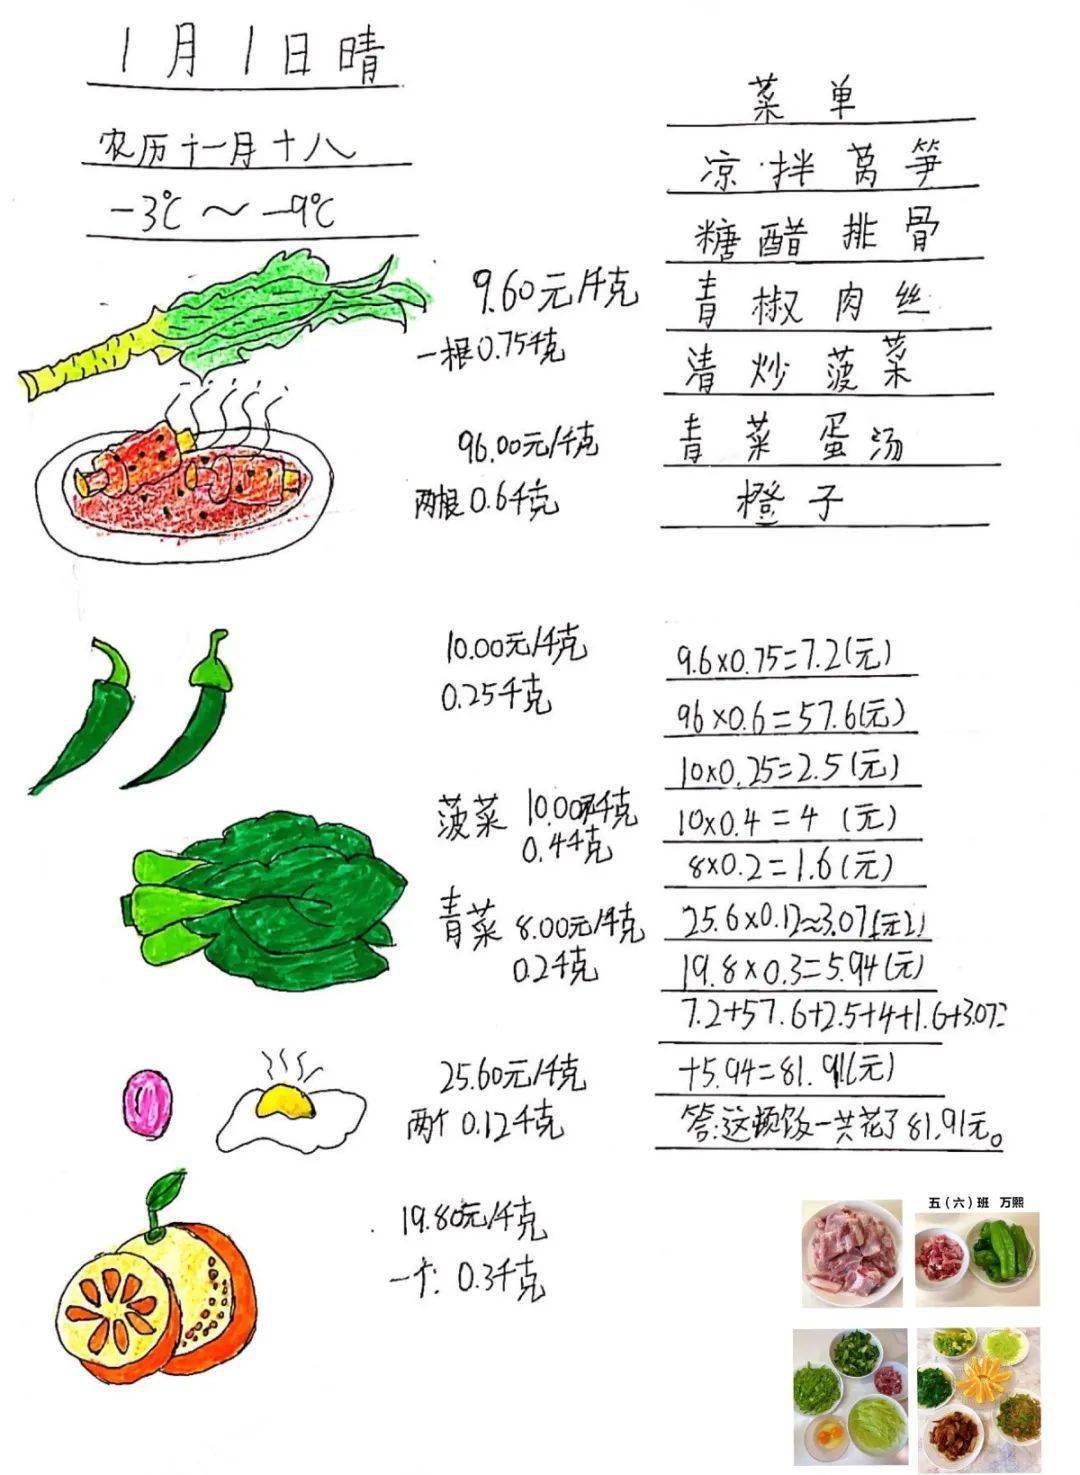 1月1日晴
农历十一月十八
-3℃～-9℃
菜单
凉拌莴笋
糖醋排骨
青椒肉丝
清炒菠菜
青菜蛋汤
橙子
9.60元/千克
一根0.75千克
96.00元/千克
两根0.6千克
10.00元/千克
0.25千克
菠菜 10.00元/千克
0.4千克
青菜 8.00元/千克
0.2千克
25.60元/千克
两个0.12千克
19.80元/千克
一个: 0.3千克
9.6×0.75=7.2(元)
96×0.6=57.6(元)
10×0.25=2.5(元)
10×0.4=4 (元)
8×0.2=1.6(元)
25.6×0.12≈3.07(元)
19.8×0.3=5.94(元)
7.2+57.6+2.5+4+1.6+3.07
+5.94=81.91(元)
答:这顿饭一共花了81.91元。
五（六）班 万熙